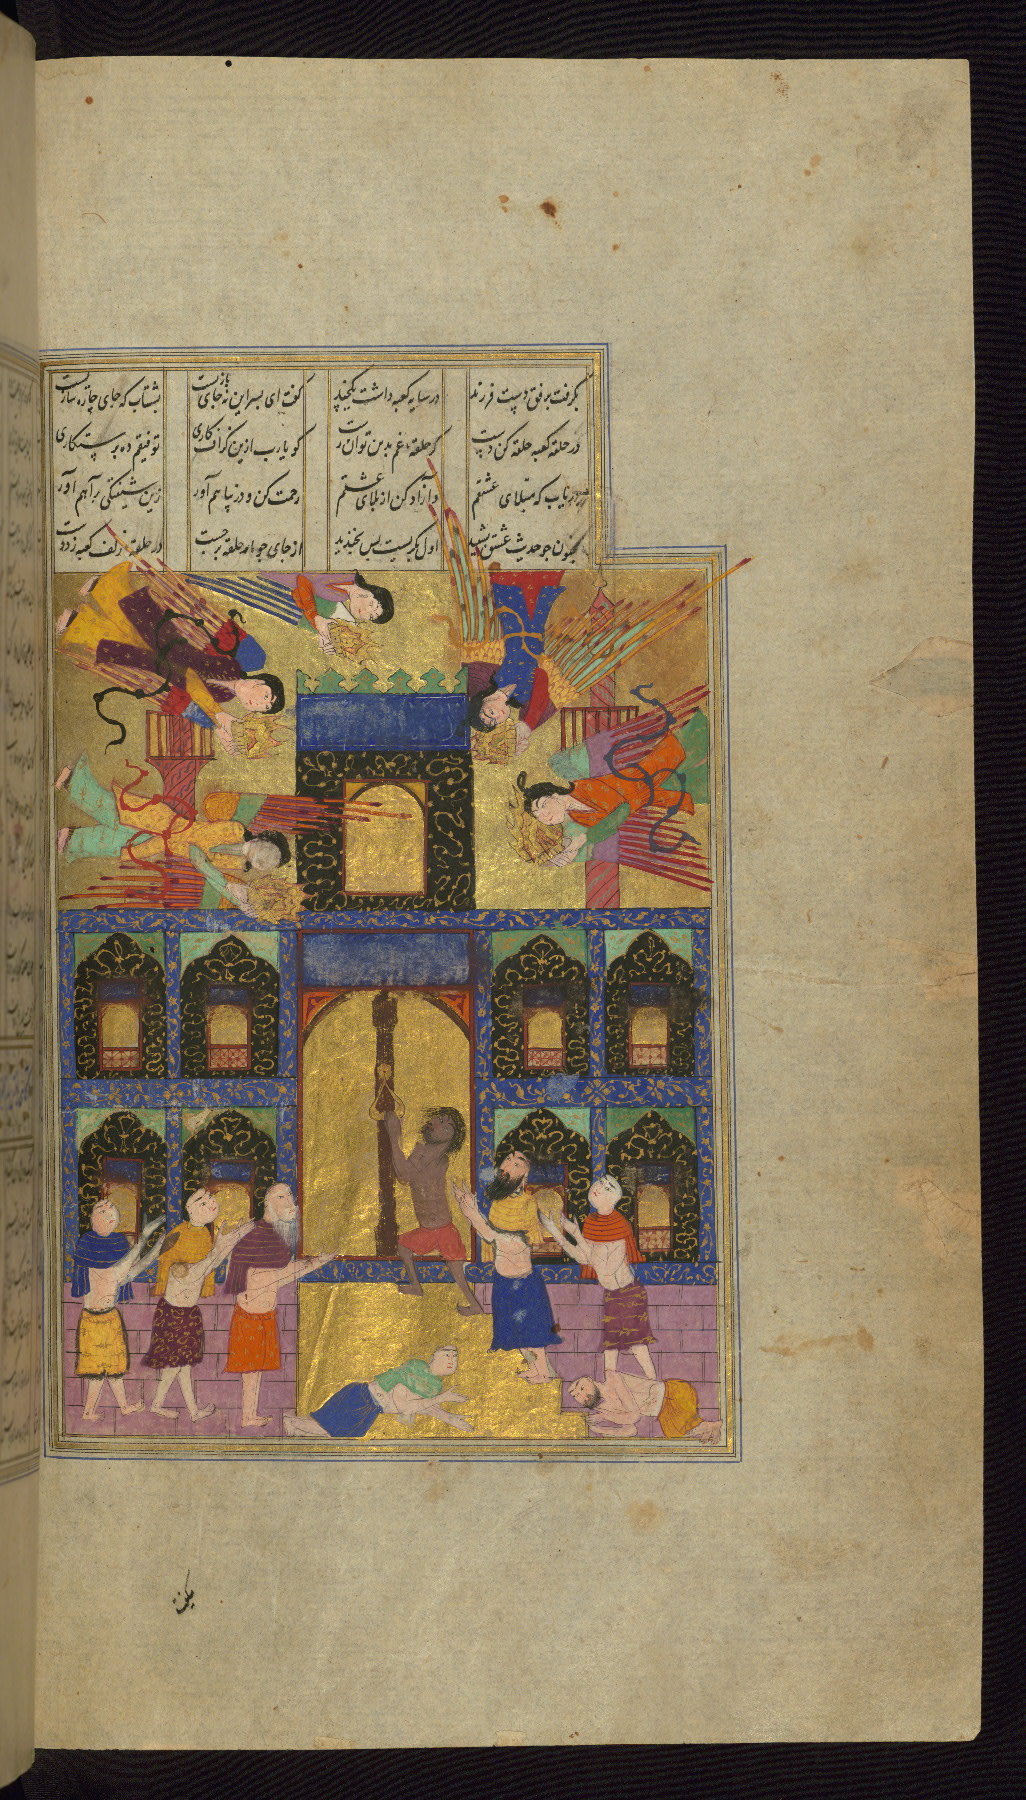 بگرفت برفق دست فرزند در سایه کعبه داشت یکچند گفت ای پسر این نه جای بازیست بشتاب که جای چاره سازیست
در حلقه کعبه حلقه کن دست کز حلقه غم بدین توان رست گو یارب ازین گزاف کاری توفیقم ده برستکاری
دریاب که مبتلای عشقم و آزاد کن از بلای عشقم رحمت کن و در پناهم آور زین شیفتگی براهم آور
مجنون چو حدیث عشق بشنید اول بگریست پس بخندید از جای چو مار حلقه برجست در حلقه زلف کعبه زد دست
میگفت